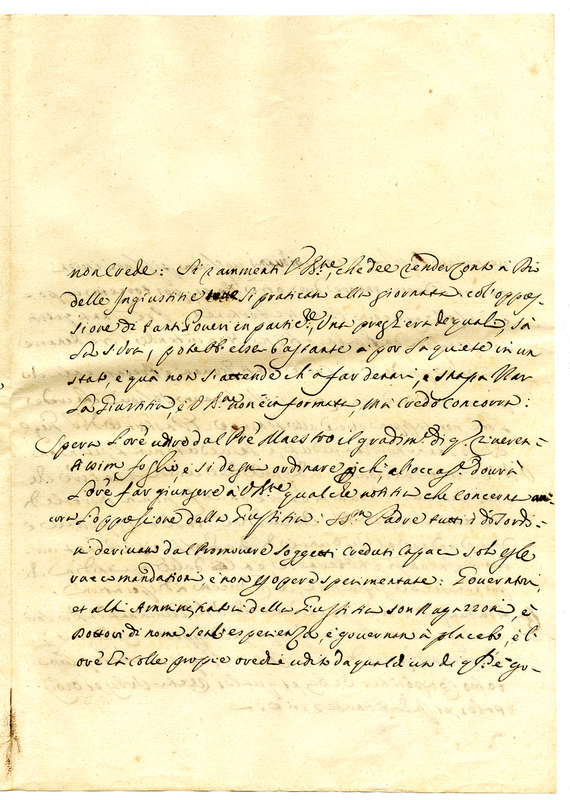 non Crede: Si rammenti V. Bne, che dee render conto à Dio
delle Ingiustitie si pratican alla giornata coll'oppres-
sione di tanti Poveri in particre, Una preghiera de quali, sà
La S.tà V.ra, potebbe esser bastante à por La quiete in un
stato, e quà non si attende ch'à far denari, e
La Giustitia, è V. Bne non è informata, mà credo concorra:
Spera L'ore udire dal Pre Maestro il gradimto di qto riveren-
tissimo foglio, e si degni ordinare chi, e l'occase dourà
L'ore far giungere à V. Bne qualche notitia che concerna an-
cora L'oppressione della Giustitia: SSmo Padre tutti i disordi-
ni derivano dal Promovere soggetti creduti capaci solo per le
raccomandationi e non p opere sperimentate: Governatori,
et altri Amministratori della Giustitia son Ragazzoni, è
Dottori di nome senza esperienza, è governan à placebo, è l'
ore hà colle proprie orecchie udito da qualched'un di qti Pre Go-